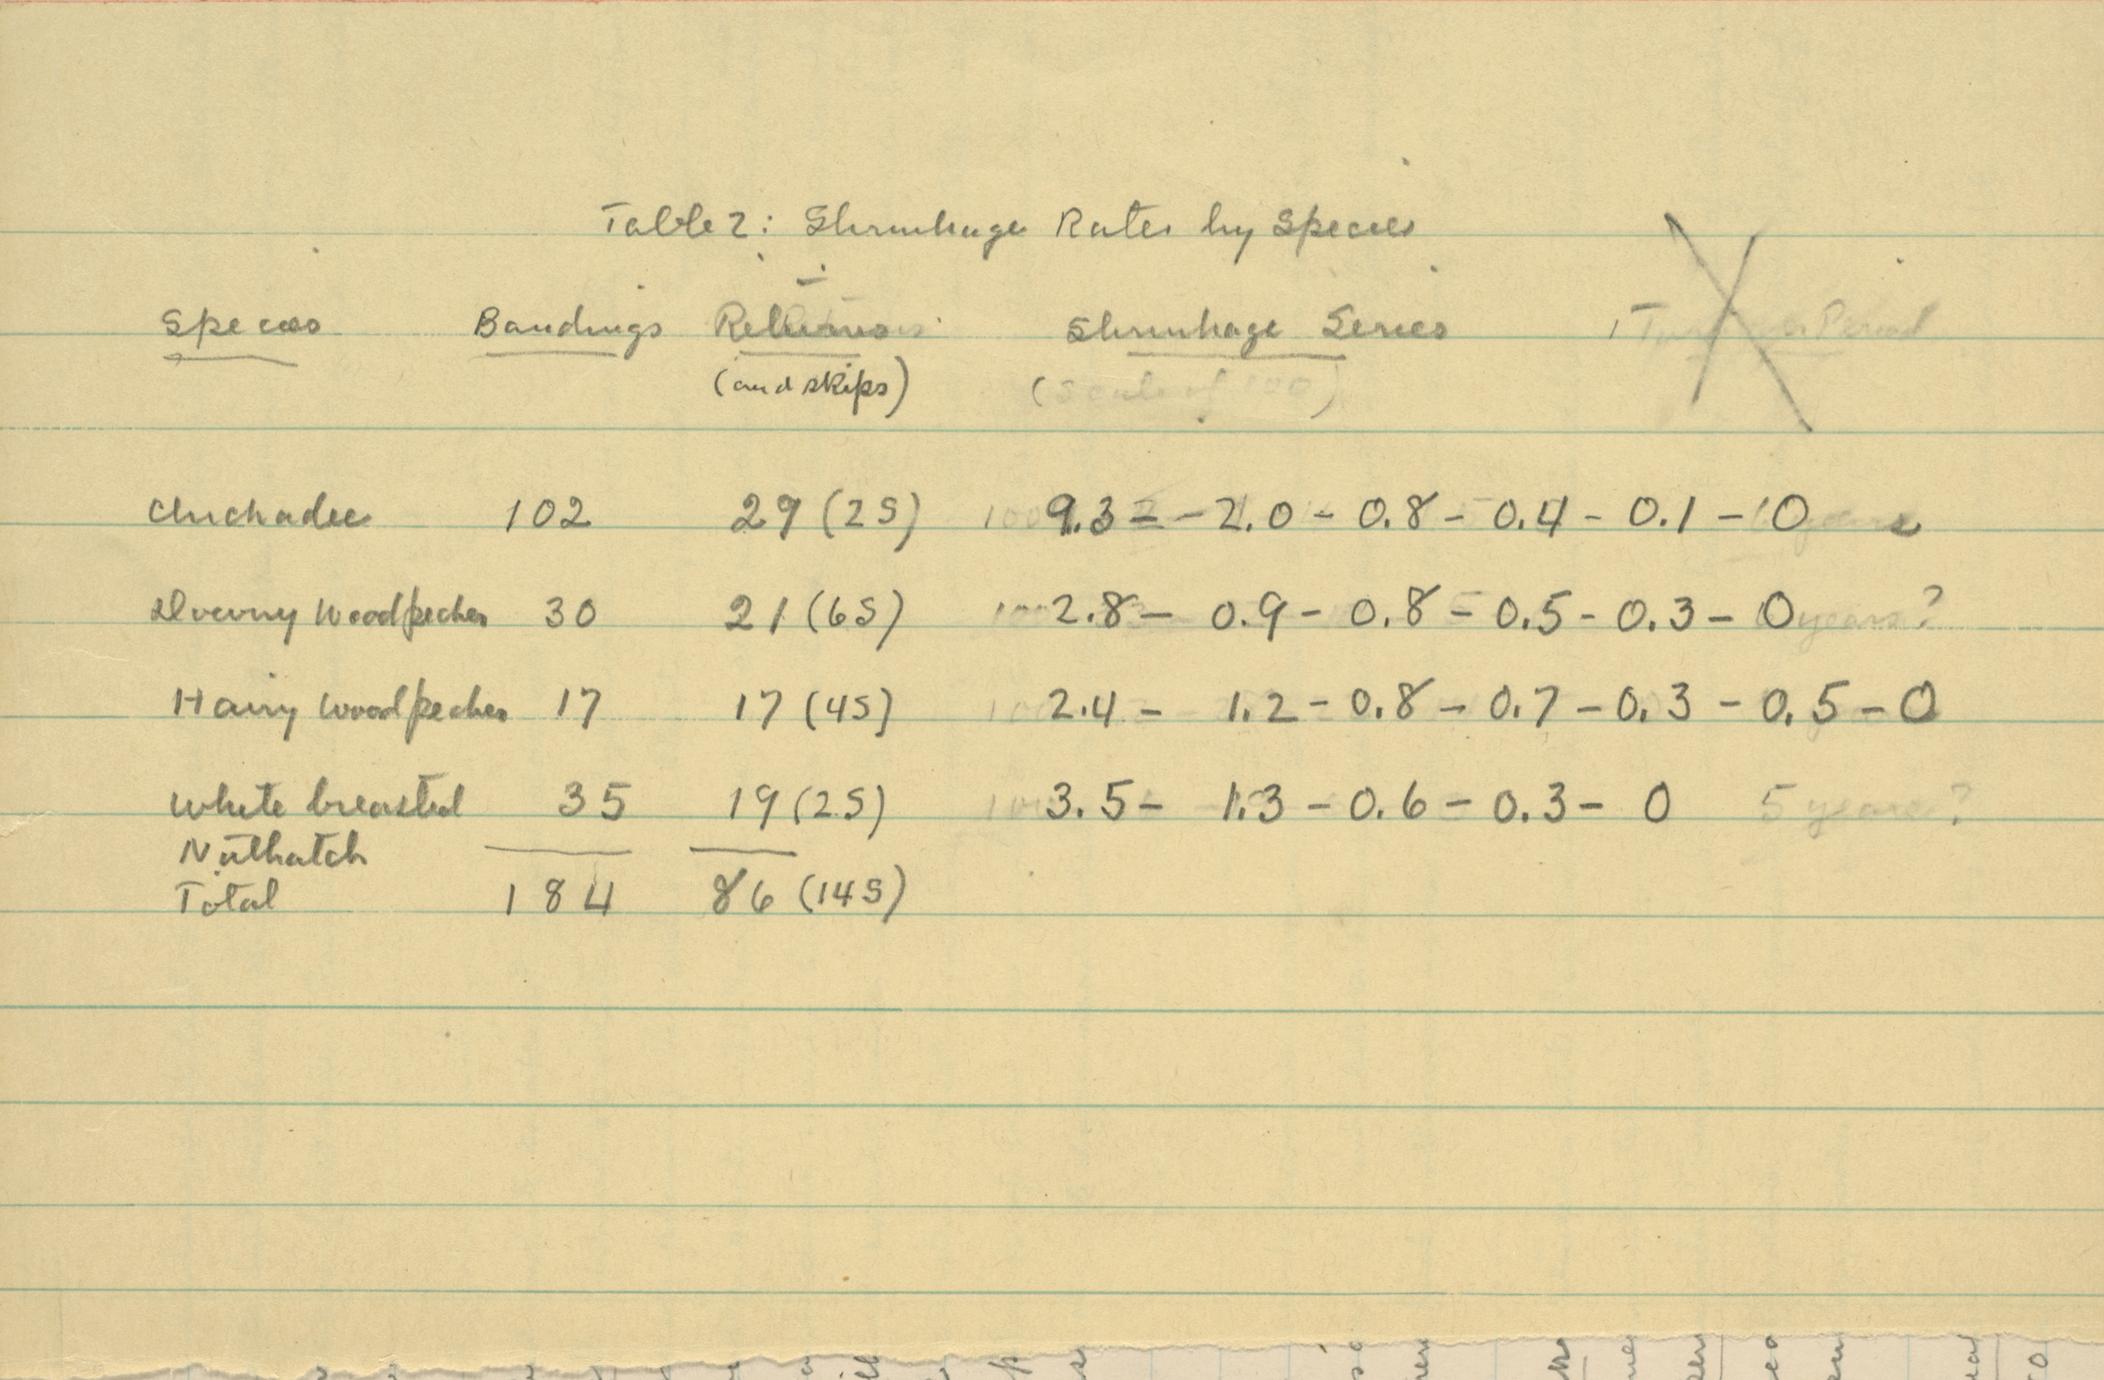 Table 2: Shrinkage Rates by Species
Species Bandings Returns Shrinkage Series Period
(and skips) (Scale of 100)
Chickadee 102 29 (2S) 9.3 - - 2.0 - 0.8 - 0.4 - 0.1 - 0
Downy Woodpecker 30 21 (6S) 2.8 - 0.9 - 0.8 - 0.5 - 0.3 - 0 years ?
Hairy Woodpecker 17 17 (4S) 2.4 - 1.2 - 0.8 - 0.7 - 0.3 - 0.5 - 0
White breasted 35 19 (2S) 3.5 - 1.3 - 0.6 - 0.3 - 0 5 years ?
Nuthatch
Total 184 86 (14S)